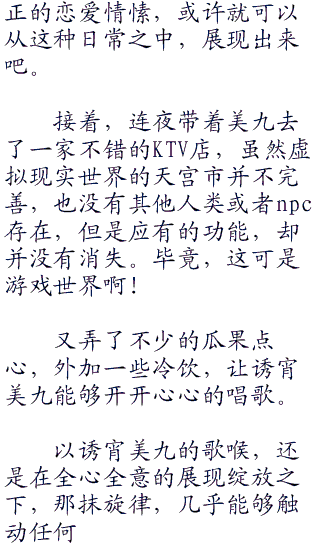 正的恋爱情愫，或许就可以
从这种日常之中，展现出来
吧。
接着，连夜带着美九去
了一家不错的KTV店，虽然虚
拟现实世界的天宫市并不完
善，也没有其他人类或者npc
存在，但是应有的功能，却
并没有消失。毕竟，这可是
游戏世界啊！
又弄了不少的瓜果点
心，外加一些冷饮，让诱宵
美九能够开开心心的唱歌。
以诱宵美九的歌喉，还
是在全心全意的展现绽放之
下，那抹旋律，几乎能够触
动任何